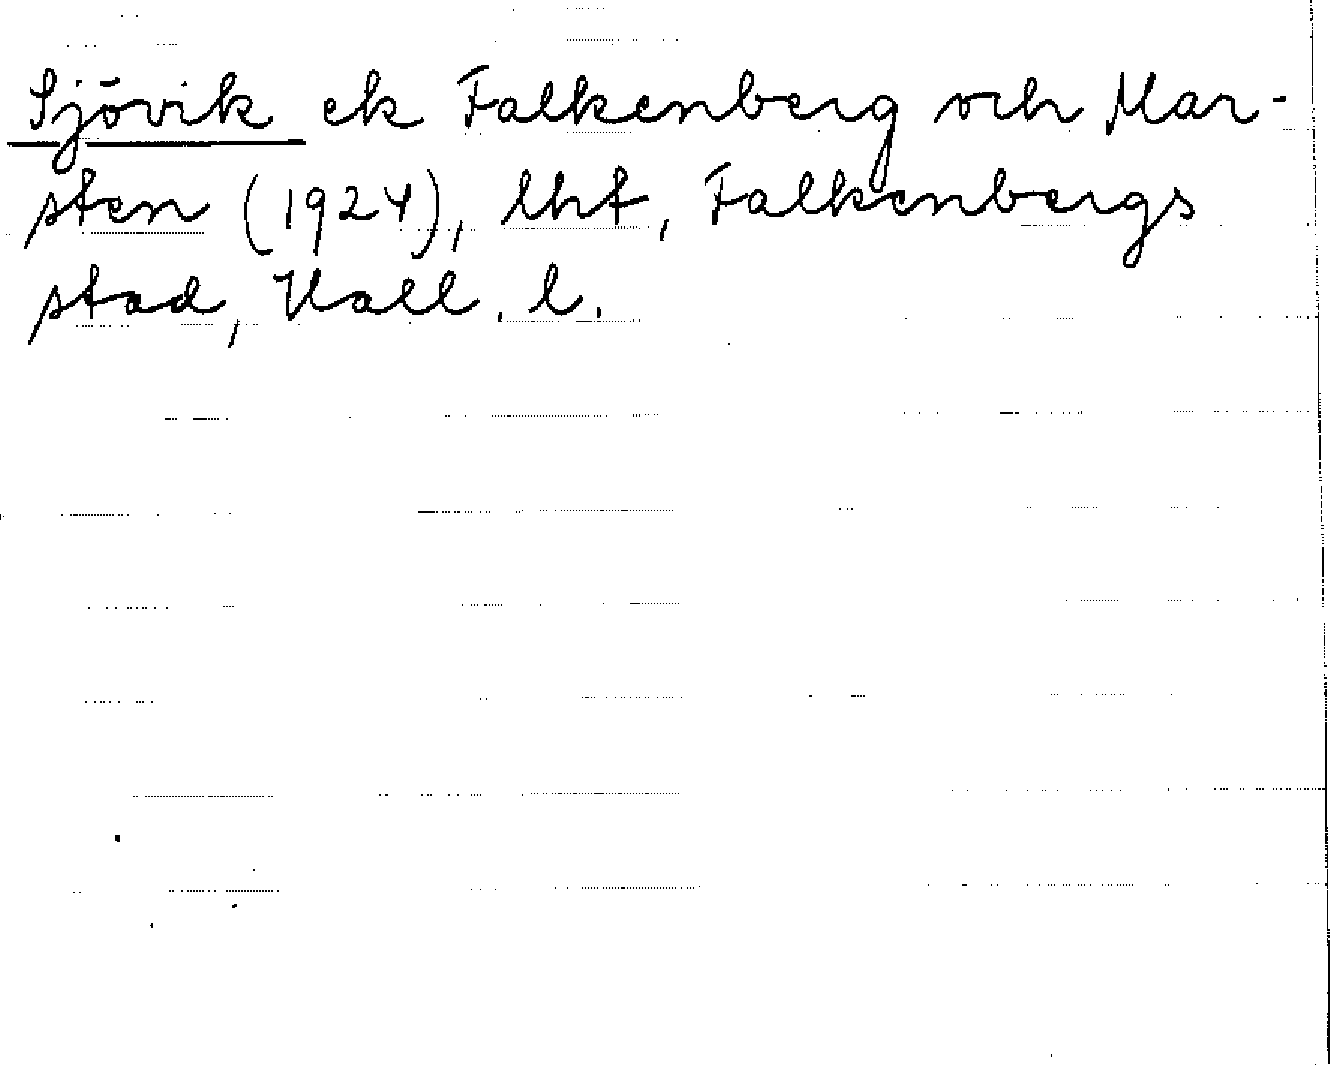 Sjövik ek Falkenberg och Mar-
sten (1924), lht, Falkenbergs
stad, Hall. l.